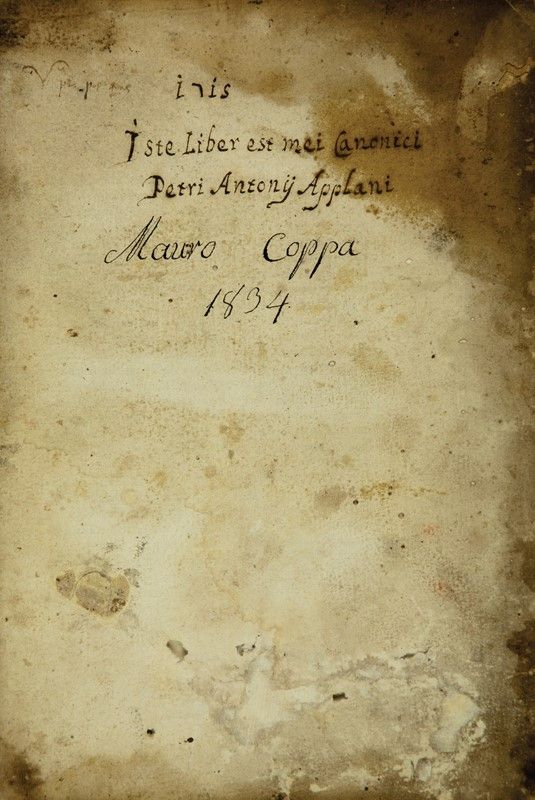 Iste Liber est mei Canonici
Petri Antonij Applani
Mauro Coppa
1834